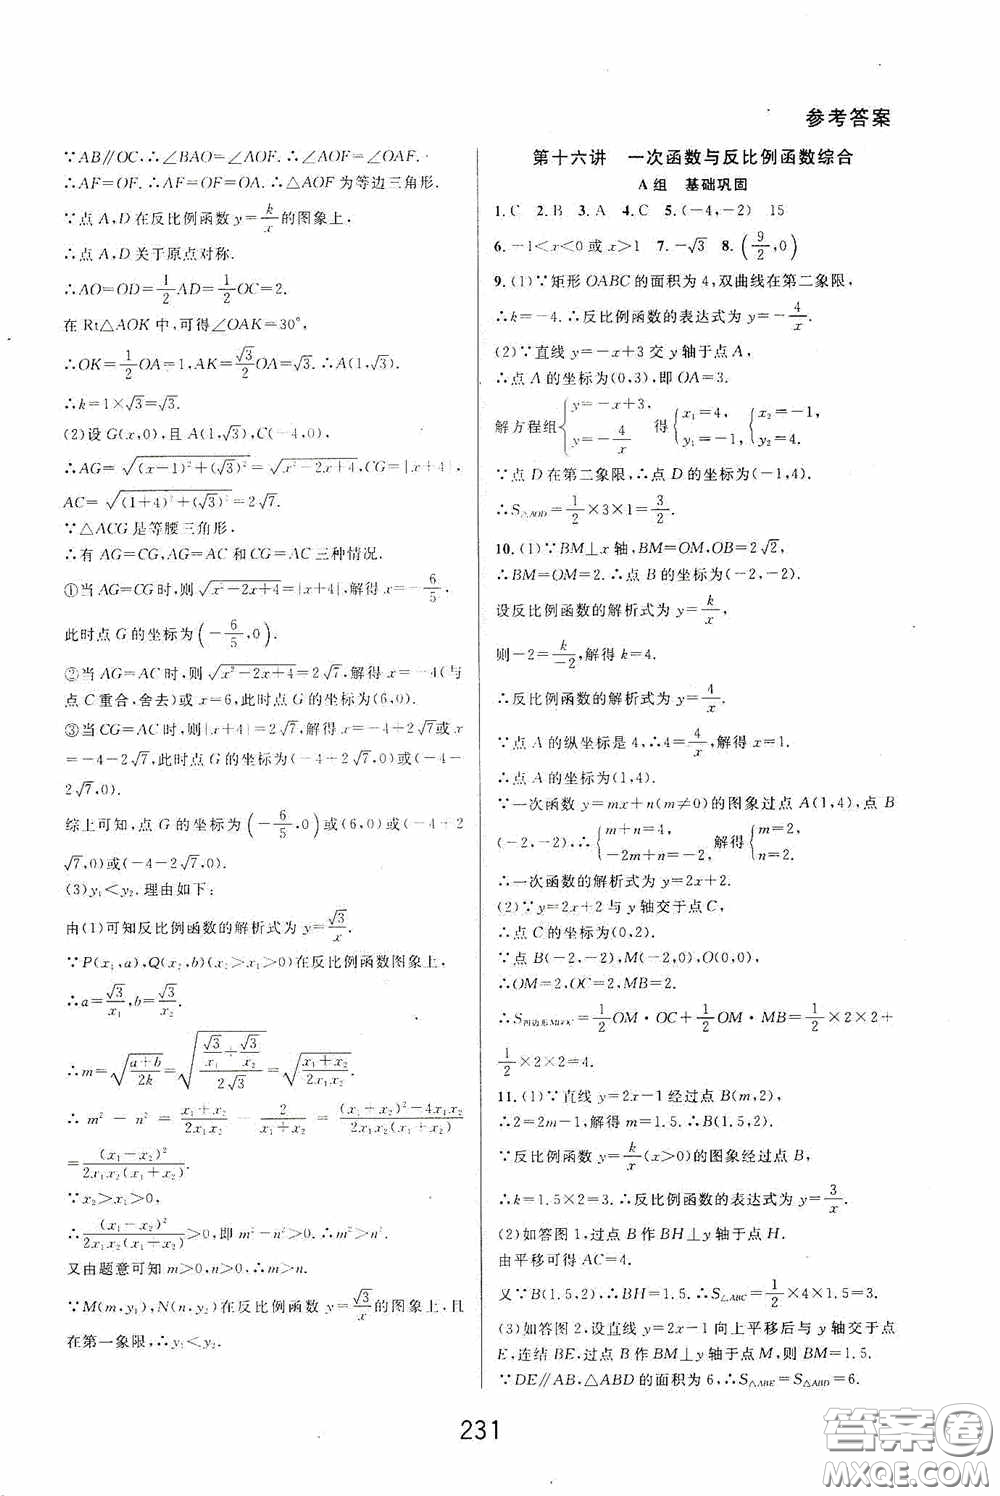 参考答案
∵AB∥OC,∴∠BAO=∠AOF,∴∠AOF=∠OAF.
∴AF=OF. ∴AF=OF=OA. ∴△AOF为等边三角形.
∵点A,D在反比例函数y=k/x的图象上,
∴点A,D关于原点对称.
∴AO=OD=1/2AD=1/2OC=2.
在Rt△AOK中,可得∠OAK=30°,
∴OK=1/2OA=1,AK=√3/2OA=√3. ∴A(1,√3).
∴k=1×√3=√3.
(2)设G(x,0),且A(1,√3),C(-4,0),
∴AG=√((x-1)²+(√3)²)=√(x²-2x+4),CG=|x+4|,
AC=√((1+4)²+(√3)²)=2√7.
∵△ACG是等腰三角形.
∴有AG=CG,AG=AC和CG=AC三种情况.
①当AG=CG时,则√(x²-2x+4)=|x+4|,解得x=-6/5.
此时点G的坐标为(-6/5,0).
②当AG=AC时,则√(x²-2x+4)=2√7,解得x=-4(与
点C重合,舍去)或x=6,此时点G的坐标为(6,0).
③当CG=AC时,则|x+4|=2√7,解得x=-4+2√7或x
=-4-2√7,此时点G的坐标为(-4+2√7,0)或(-4-
2√7,0).
综上可知,点G的坐标为(-6/5,0)或(6,0)或(-4+2
√7,0)或(-4-2√7,0).
(3)y₁<y₂.理由如下:
由(1)可知反比例函数的解析式为y=√3/x.
∵P(x₁,a),Q(x₂,b)(x₂>x₁>0)在反比例函数图象上,
∴a=√3/x₁,b=√3/x₂.
∴m=√((a+b)/2k)=√((√3/x₁+√3/x₂)/2√3)=√((x₁+x₂)/2x₁x₂).
∴m²-n²=(x₁+x₂)/2x₁x₂-2/(x₁+x₂)=((x₁+x₂)²-4x₁x₂)/2x₁x₂(x₁+x₂)
=(x₁-x₂)²/2x₁x₂(x₁+x₂).
∵x₂>x₁>0,
∴(x₁-x₂)²/2x₁x₂(x₁+x₂)>0,即m²-n²>0.∴m²>n².
又由题意可知m>0,n>0,∴m>n.
∵M(m,y₁),N(n,y₂)在反比例函数y=√3/x的图象上,且
在第一象限,∴y₁<y₂.
第十六讲 一次函数与反比例函数综合
A组 基础巩固
1.C 2.B 3.A 4.C 5.(-4,-2) 15
6.-1<x<0或x>1 7.-√3 8.(9/2,0)
9.(1)∵矩形OABC的面积为4,双曲线在第二象限,
∴k=-4.∴反比例函数的表达式为y=-4/x.
(2)∵直线y=-x+3交y轴于点A,
∴点A的坐标为(0,3),即OA=3.
解方程组{y=-x+3, y=-4/x 得{x₁=4, y₁=-1, {x₂=-1, y₂=4.
∵点D在第二象限,∴点D的坐标为(-1,4).
∴S△AOD=1/2×3×1=3/2.
10.(1)∵BM⊥x轴,BM=OM,OB=2√2,
∴BM=OM=2.∴点B的坐标为(-2,-2).
设反比例函数的解析式为y=k/x,
则-2=k/-2,解得k=4.
∴反比例函数的解析式为y=4/x.
∵点A的纵坐标是4,∴4=4/x,解得x=1.
∴点A的坐标为(1,4).
∵一次函数y=mx+n(m≠0)的图象过点A(1,4),点B
(-2,-2),∴{m+n=4, -2m+n=-2, 解得{m=2, n=2.
∴一次函数的解析式为y=2x+2.
(2)∵y=2x+2与y轴交于点C,
∴点C的坐标为(0,2).
∵点B(-2,-2),M(-2,0),O(0,0),
∴OM=2,OC=2,MB=2.
∴S四边形MBOC=1/2OM·OC+1/2OM·MB=1/2×2×2+
1/2×2×2=4.
11.(1)∵直线y=2x-1经过点B(m,2),
∴2=2m-1,解得m=1.5.∴B(1.5,2).
∵反比例函数y=k/x(x>0)的图象经过点B,
∴k=1.5×2=3.∴反比例函数的表达式为y=3/x.
(2)如答图1,过点B作BH⊥y轴于点H.
由平移可得AC=4.
又∵B(1.5,2),∴BH=1.5.∴S△ABC=1/2×4×1.5=3.
(3)如答图2,设直线y=2x-1向上平移后与y轴交于点
E,连结BE,过点B作BM⊥y轴于点M,则BM=1.5.
∵DE∥AB,△ABD的面积为6,∴S△ABE=S△ABD=6.
231
答案圈
MXQE.COM